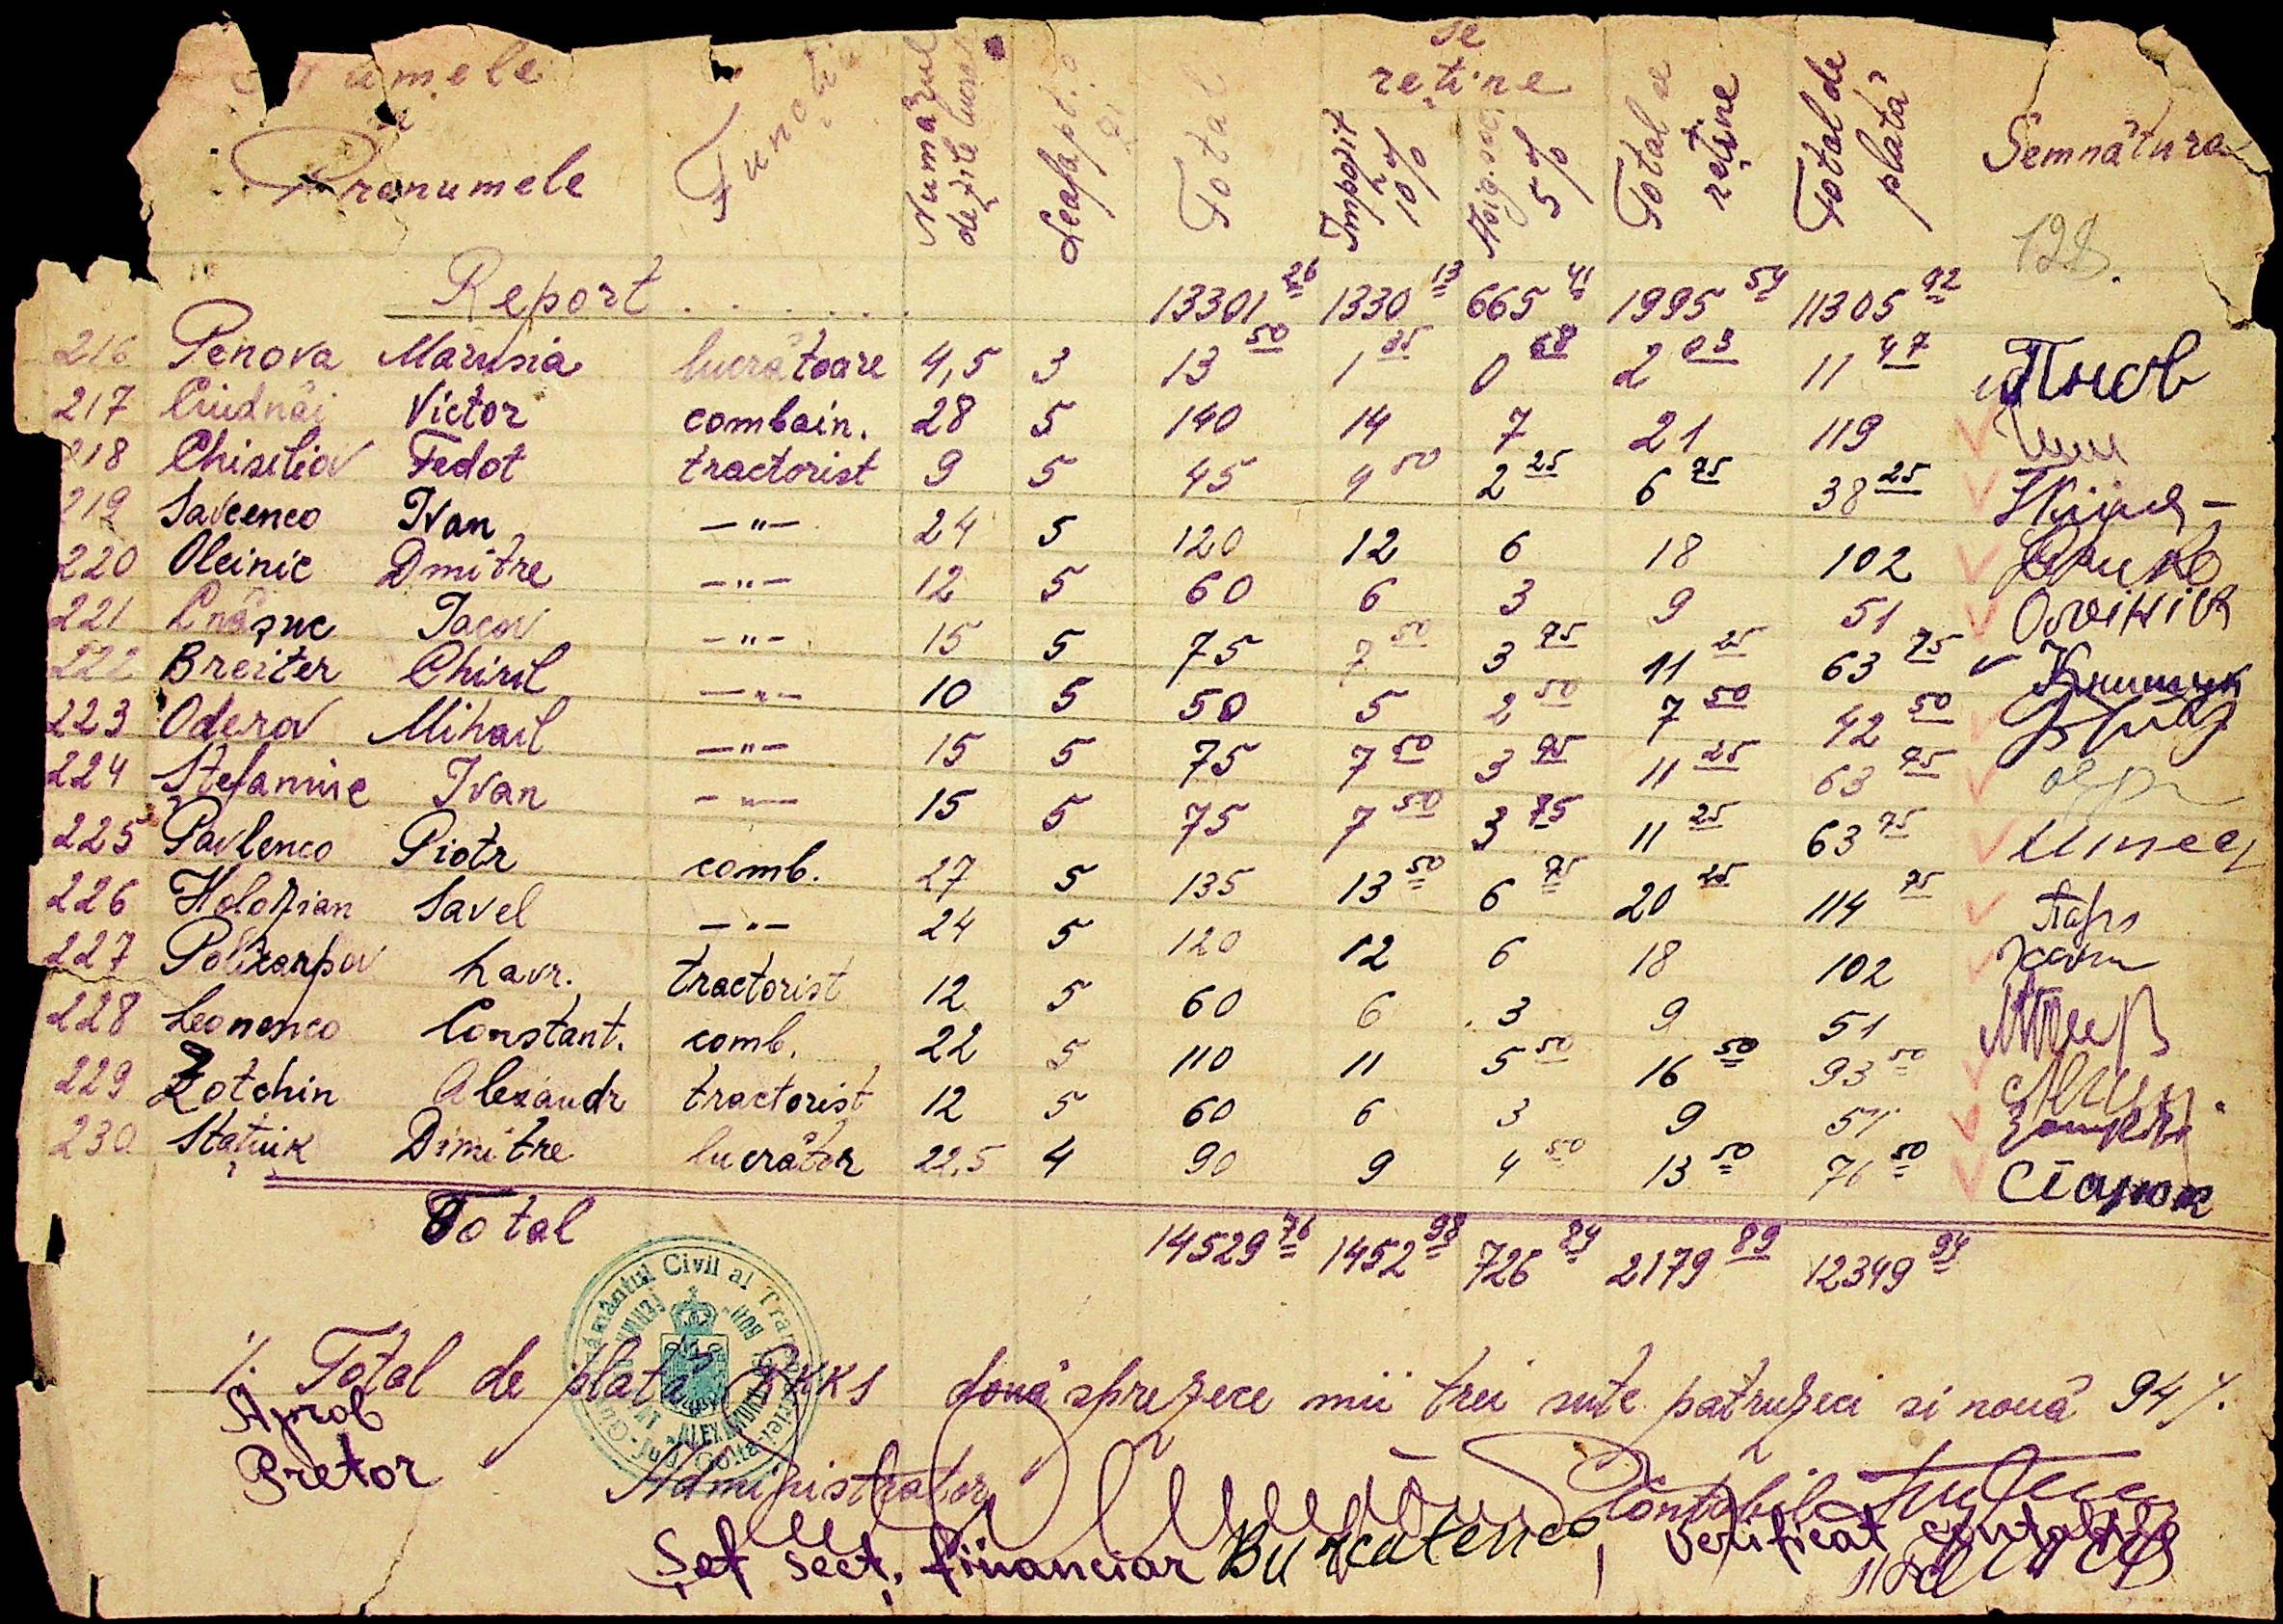 Numele
și
Pronumele Funcți Numărul de zile lucrat Leafa pt. o zi Total se reține Impozit 10% Asig. soc. 5% Total se reține Total de plată Semnătura
128.
Report . . . . . . 13301 26 1330 13 665 41 1995 54 11305 92
216 Penova Marusia lucrătoare 4,5 3 13 50 1 35 0 68 2 03 11 47
217 Ciudnăi Victor combain. 28 5 140 14 7 21 119
218 Chiseliov Fedot tractorist 9 5 45 4 50 2 25 6 75 38 25
219 Savcenco Ivan —"— 24 5 120 12 6 18 102
220 Oleinic Dmitre —"— 12 5 60 6 3 9 51 Олейник
221 Cnășuc Iacov —"— 15 5 75 7 50 3 75 11 25 63 75
222 Breiter Chiril —"— 10 5 50 5 2 50 7 50 42 50
223 Oderov Mihail —"— 15 5 75 7 50 3 75 11 25 63 75
224 Ștefaniuc Ivan —"— 15 5 75 7 50 3 75 11 25 63 75
225 Pavlenco Piotr comb. 27 5 135 13 50 6 75 20 25 114 75
226 Holozian Savel —"— 24 5 120 12 6 18 102
227 Policarpov Lavr. tractorist 12 5 60 6 3 9 51
228 Leonenco Constant. comb. 22 5 110 11 5 50 16 50 93 50
229 Zotchin Alexandr tractorist 12 5 60 6 3 9 51
230 Stațiuk Dimitre lucrător 22,5 4 90 9 4 50 13 50 76 50
Total 14529 76 1452 98 726 84 2179 89 12349 94
Guvernământul Civil al Transnistriei-Jud. Golta
%. Total de plată RKKS două sprezece mii trei sute patruzeci si nouă 94%.
Aprob
Pretor
Administrator Contabil
Șef secț. financiar Burcatenco Verificat contabil